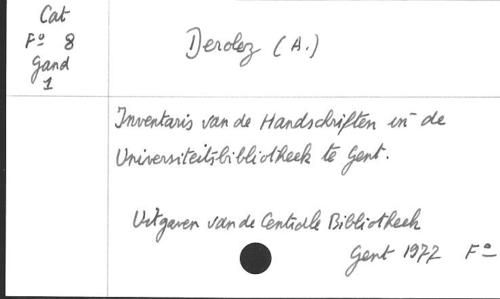 Cat
Fº 8
Gand
1
Derolez (A.)
Inventaris van de Handschriften in de
Universiteitsbibliotheek te Gent.
Uitgaven van de Centrale Bibliotheek
Gent 1977 Fº